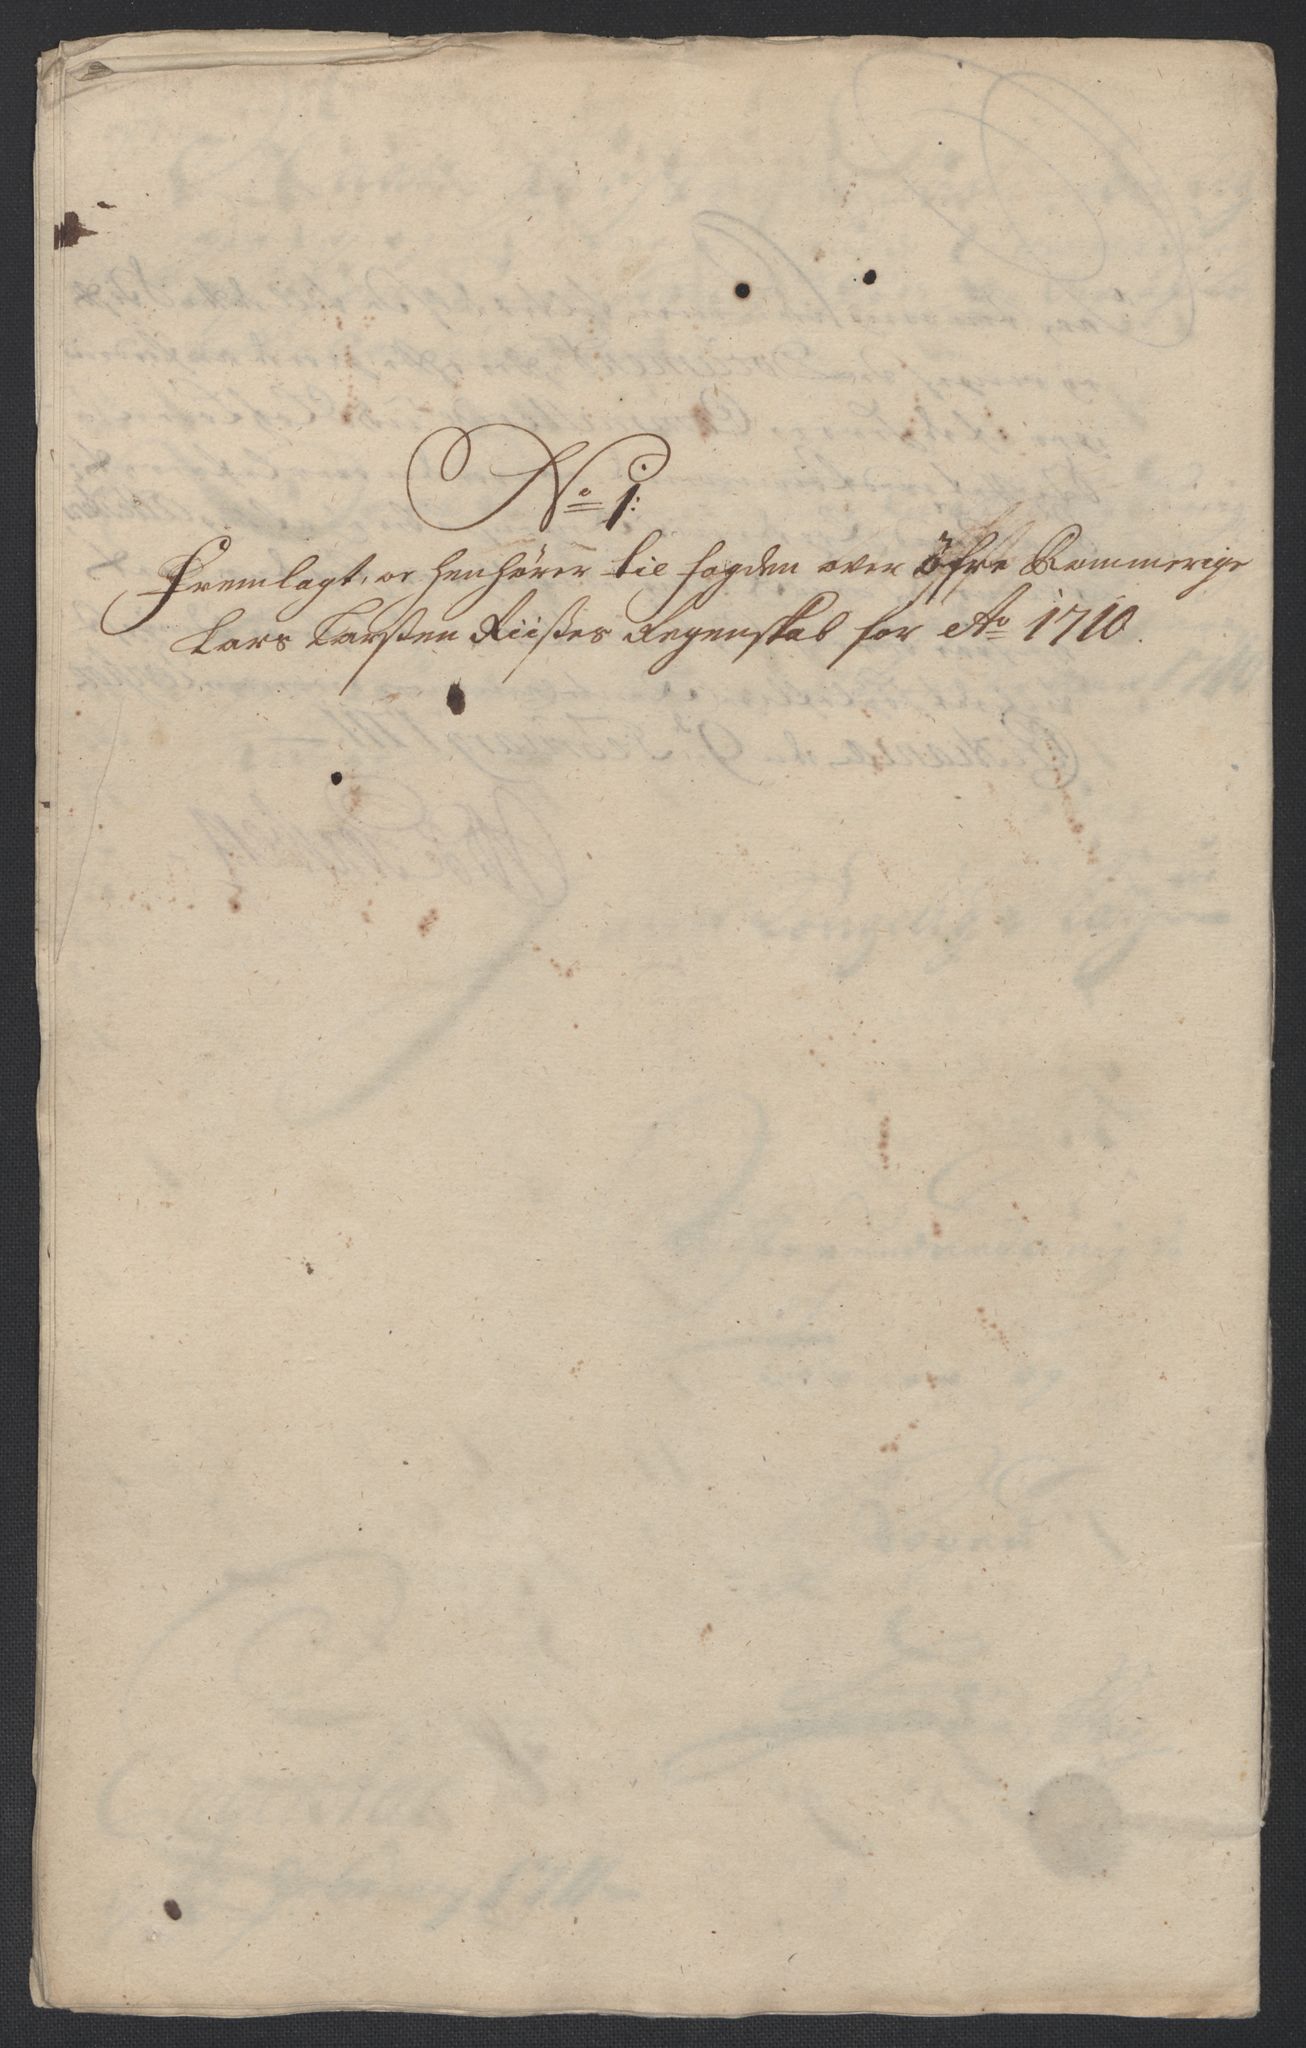 No 1:
Fremlagt, oc henhører til fogden over Öfre Rommerige
Lars Larssen Riises Regenskab for Ao 1710.